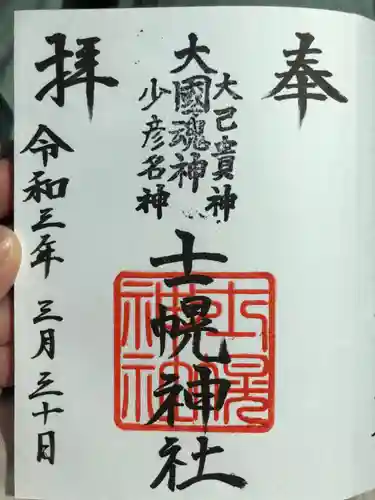 奉
拝
大己貴神
大國魂神
少彦名神
士幌神社
士幌
神社
令和三年 三月 三十日